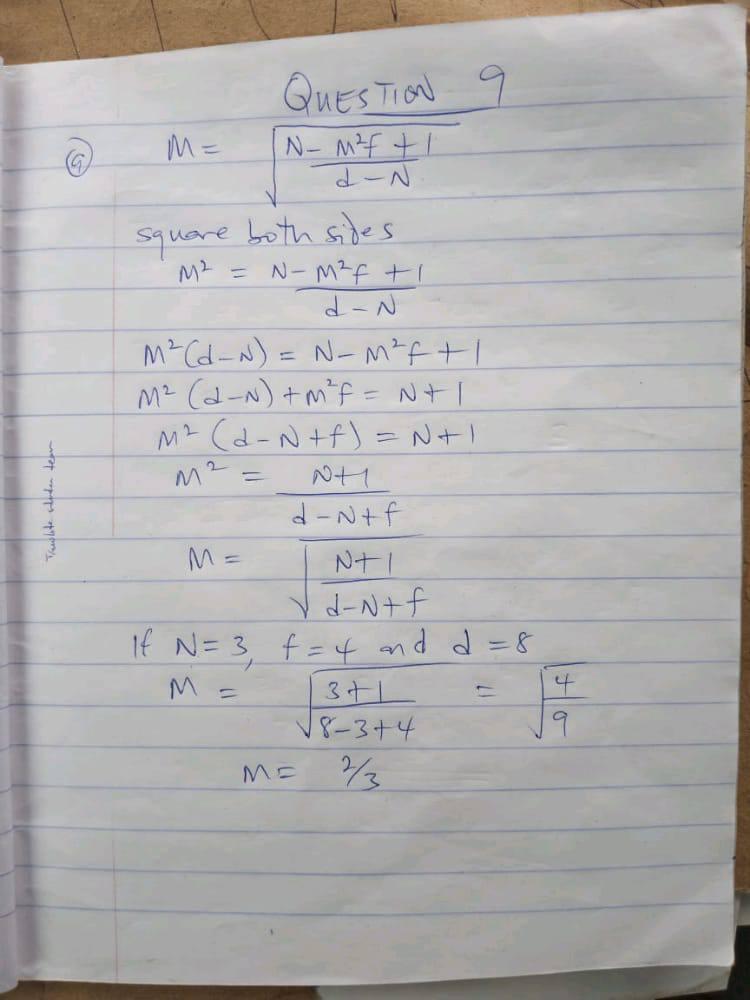 QUESTION 9
(a) M = √((N - M²f + 1)/(d - N))
square both sides
M² = (N - M²f + 1)/(d - N)
M²(d-N) = N - M²f + 1
M² (d-N) + m²f = N + 1
M² (d - N + f) = N + 1
M² = (N+1)/(d - N + f)
M = √((N+1)/(d-N+f))
If N = 3, f = 4 and d = 8
M = √((3+1)/(8-3+4)) = √(4/9)
M = 2/3